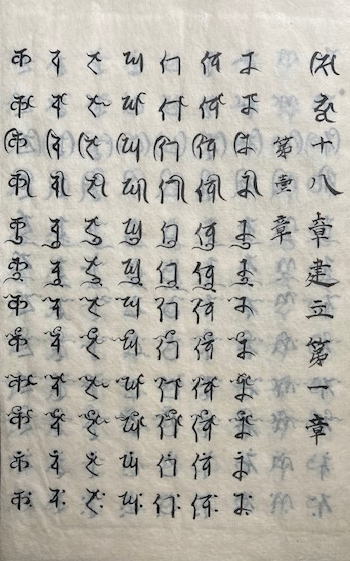 𑖭𑖰𑖟𑖿𑖠𑖽十八章建立第一章
第壹章
𑖎 𑖎𑖯 𑖎𑖰 𑖎𑖱 𑖎𑖲 𑖎𑖳 𑖎𑖸 𑖎𑖹 𑖎𑖺 𑖎𑖻 𑖎𑖽 𑖎𑖾
𑖏 𑖏𑖯 𑖏𑖰 𑖏𑖱 𑖏𑖲 𑖏𑖳 𑖏𑖸 𑖏𑖹 𑖏𑖺 𑖏𑖻 𑖏𑖽 𑖏𑖾
𑖐 𑖐𑖯 𑖐𑖰 𑖐𑖱 𑖐𑖲 𑖐𑖳 𑖐𑖸 𑖐𑖹 𑖐𑖺 𑖐𑖻 𑖐𑖽 𑖐𑖾
𑖑 𑖑𑖯 𑖑𑖰 𑖑𑖱 𑖑𑖲 𑖑𑖳 𑖑𑖸 𑖑𑖹 𑖑𑖺 𑖑𑖻 𑖑𑖽 𑖑𑖾
𑖒 𑖒𑖯 𑖒𑖰 𑖒𑖱 𑖒𑖲 𑖒𑖳 𑖒𑖸 𑖒𑖹 𑖒𑖺 𑖒𑖻 𑖒𑖽 𑖒𑖾
𑖓 𑖓𑖯 𑖓𑖰 𑖓𑖱 𑖓𑖲 𑖓𑖳 𑖓𑖸 𑖓𑖹 𑖓𑖺 𑖓𑖻 𑖓𑖽 𑖓𑖾
𑖔 𑖔𑖯 𑖔𑖰 𑖔𑖱 𑖔𑖲 𑖔𑖳 𑖔𑖸 𑖔𑖹 𑖔𑖺 𑖔𑖻 𑖔𑖽 𑖔𑖾